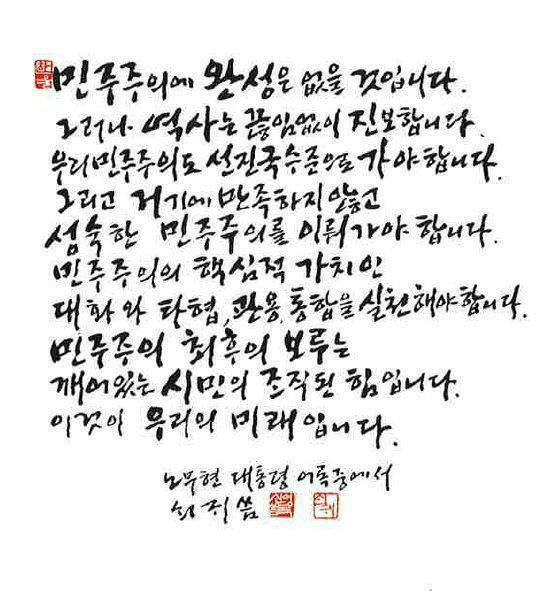 민주주의에 완성은 없을 것입니다.
그러나 역사는 끊임없이 진보합니다.
우리 민주주의도 선진국 수준으로 가야 합니다.
그리고 거기에 만족하지 않고
성숙한 민주주의를 이뤄가야 합니다.
민주주의의 핵심적 가치인
대화와 타협, 관용, 통합을 실천해야 합니다.
민주주의 최후의 보루는
깨어있는 시민의 조직된 힘입니다.
이것이 우리의 미래입니다.
노무현 대통령 어록중에서
씀